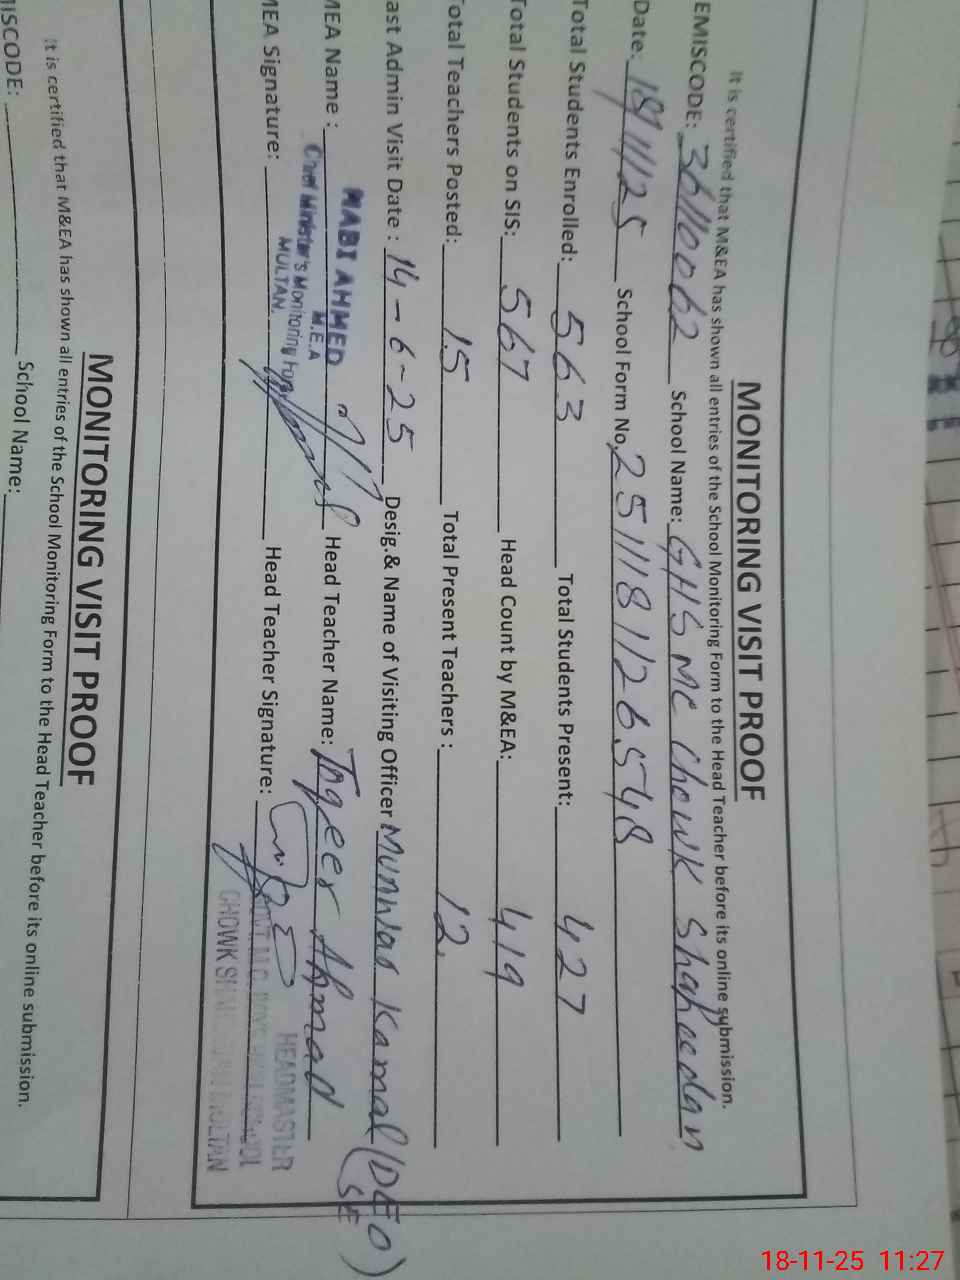 MONITORING VISIT PROOF
It is certified that M&EA has shown all entries of the School Monitoring Form to the Head Teacher before its online submission.
EMISCODE: 36110062 School Name: GHS MC Chowk Shaheedan
Date: 18/11/25 School Form No. 2511181126548
Total Students Enrolled: 563 Total Students Present: 427
Total Students on SIS: 567 Head Count by M&EA: 419
Total Teachers Posted: 15 Total Present Teachers: 12
ast Admin Visit Date: 14-6-25 Desig.& Name of Visiting Officer Kamal (DEO SE)
MEA Name: NABI AHMED Head Teacher Name: Toqeer Ahmad
M.E.A
Chief Minister's Monitoring Force
MULTAN.
MEA Signature: Head Teacher Signature:
HEADMASTER
GOVT. M.C. BOYS HIGH SCHOOL
CHOWK SHAHEEDAN MULTAN
MONITORING VISIT PROOF
It is certified that M&EA has shown all entries of the School Monitoring Form to the Head Teacher before its online submission.
MISCODE: School Name:
18-11-25 11:27